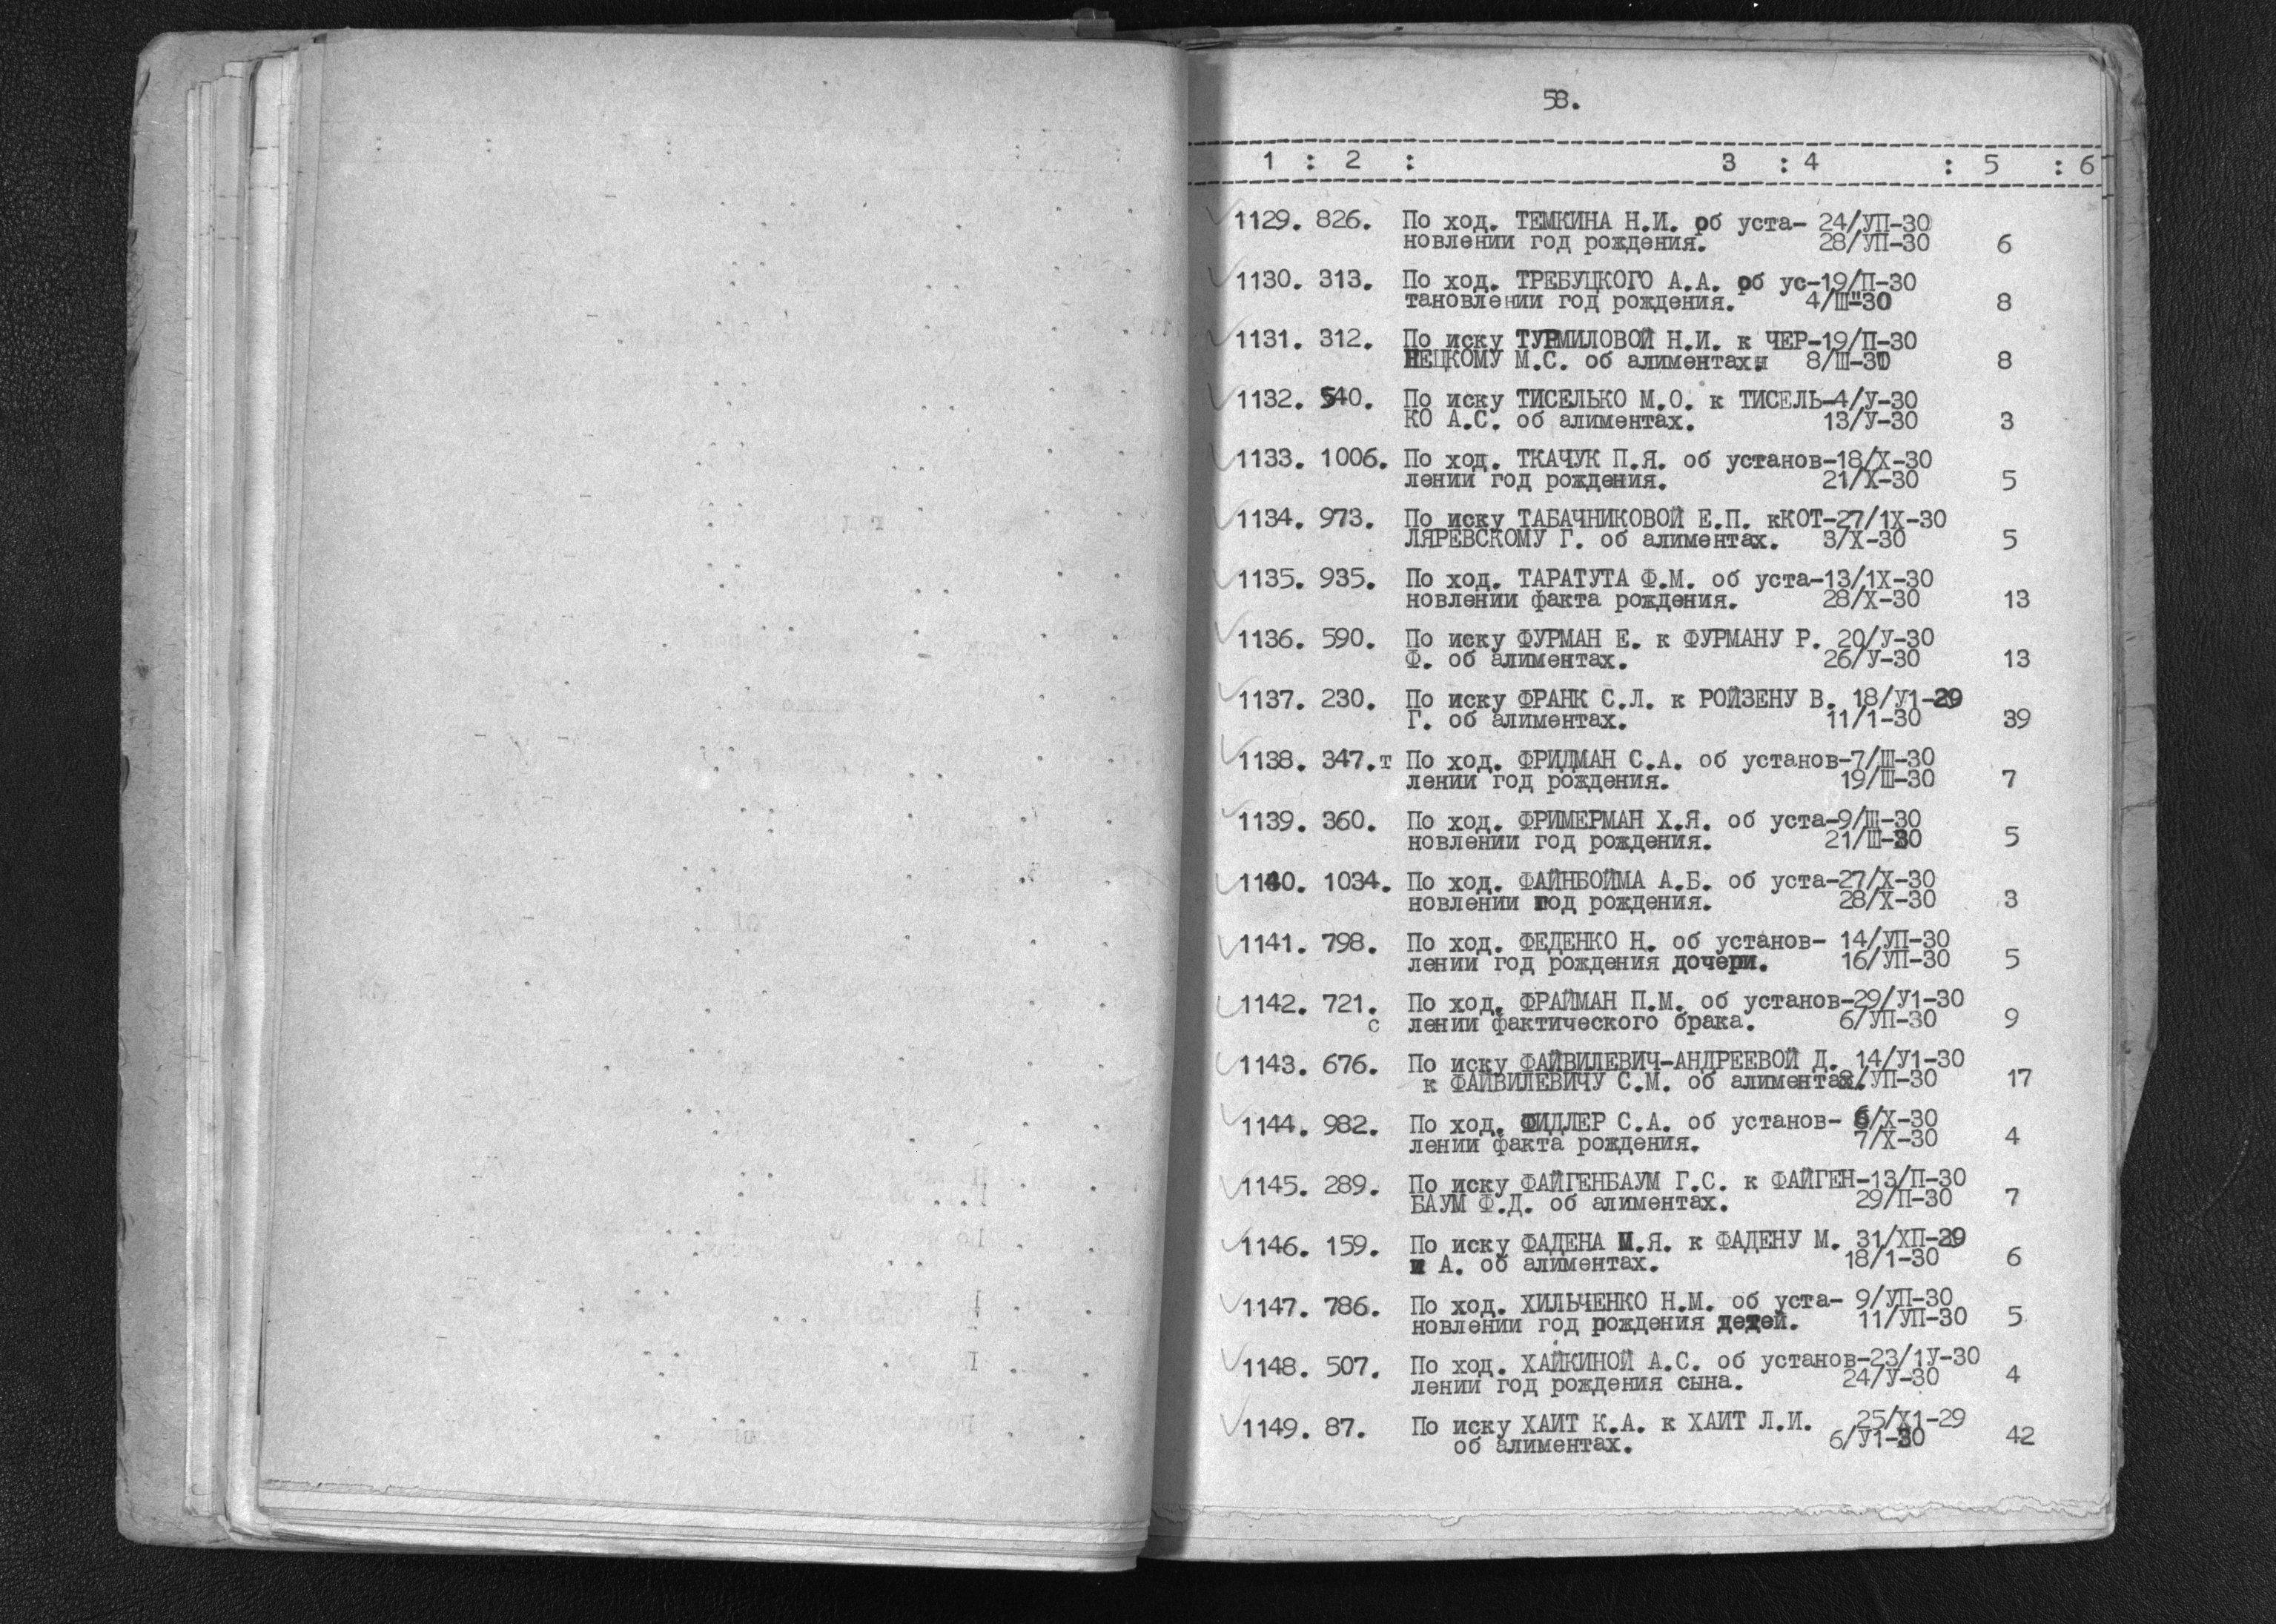 58.
1 : 2 : 3 : 4 : 5 : 6
1129. 826. По ход. ТЕМКИНА Н.И. об уста- 24/УП-30
новлении год рождения. 28/УП-30 6
1130. 313. По ход. ТРЕБУЦКОГО А.А. об ус-19/П-30
тановлении год рождения. 4/Ш"30 8
1131. 312. По иску ТУРМИЛОВОЙ Н.И. к ЧЕР-19/П-30
НЕЦКОМУ М.С. об алиментах. 8/Ш-30 8
1132. 540. По иску ТИСЕЛЬКО М.О. к ТИСЕЛЬ-4/У-30
КО А.С. об алиментах. 13/У-30 3
1133. 1006. По ход. ТКАЧУК П.Я. об установ-18/Х-30
лении год рождения. 21/Х-30 5
1134. 973. По иску ТАБАЧНИКОВОЙ Е.П. кКОТ-27/1Х-30
ЛЯРЕВСКОМУ Г. об алиментах. 3/Х-30 5
1135. 935. По ход. ТАРАТУТА Ф.М. об уста-13/1Х-30
новлении факта рождения. 28/Х-30 13
1136. 590. По иску ФУРМАН Е. к ФУРМАНУ Р. 20/У-30
Ф. об алиментах. 26/У-30 13
1137. 230. По иску ФРАНК С.Л. к РОЙЗЕНУ В. 18/У1-29
Г. об алиментах. 11/1-30 39
1138. 347.т По ход. ФРИДМАН С.А. об установ-7/Ш-30
лении год рождения. 19/Ш-30 7
1139. 360. По ход. ФРИМЕРМАН Х.Я. об уста-9/Ш-30
новлении год рождения. 21/Ш-30 5
1140. 1034. По ход. ФАЙНБОЙМА А.Б. об уста-27/Х-30
новлении год рождения. 28/Х-30 3
1141. 798. По ход. ФЕДЕНКО Н. об установ- 14/УП-30
лении год рождения дочери. 16/УП-30 5
1142. 721. По ход. ФРАЙМАН П.М. об установ-29/У1-30
с лении фактического брака. 6/УП-30 9
1143. 676. По иску ФАЙВИЛЕВИЧ-АНДРЕЕВОЙ Д. 14/У1-30
к ФАЙВИЛЕВИЧУ С.М. об алиментах. 8/УП-30 17
1144. 982. По ход. ФИДЛЕР С.А. об установ- 6/Х-30
лении факта рождения. 7/Х-30 4
1145. 289. По иску ФАЙГЕНБАУМ Г.С. к ФАЙГЕН-13/П-30
БАУМ Ф.Д. об алиментах. 29/П-30 7
1146. 159. По иску ФАДЕНА М.Я. к ФАДЕНУ М. 31/ХП-29
и А. об алиментах. 18/1-30 6
1147. 786. По ход. ХИЛЬЧЕНКО Н.М. об уста- 9/УП-30
новлении год рождения детей. 11/УП-30 5
1148. 507. По ход. ХАЙКИНОЙ А.С. об установ-23/1У-30
лении год рождения сына. 24/У-30 4
1149. 87. По иску ХАИТ К.А. к ХАИТ Л.И. 25/Х1-29
об алиментах. 6/У1-30 42